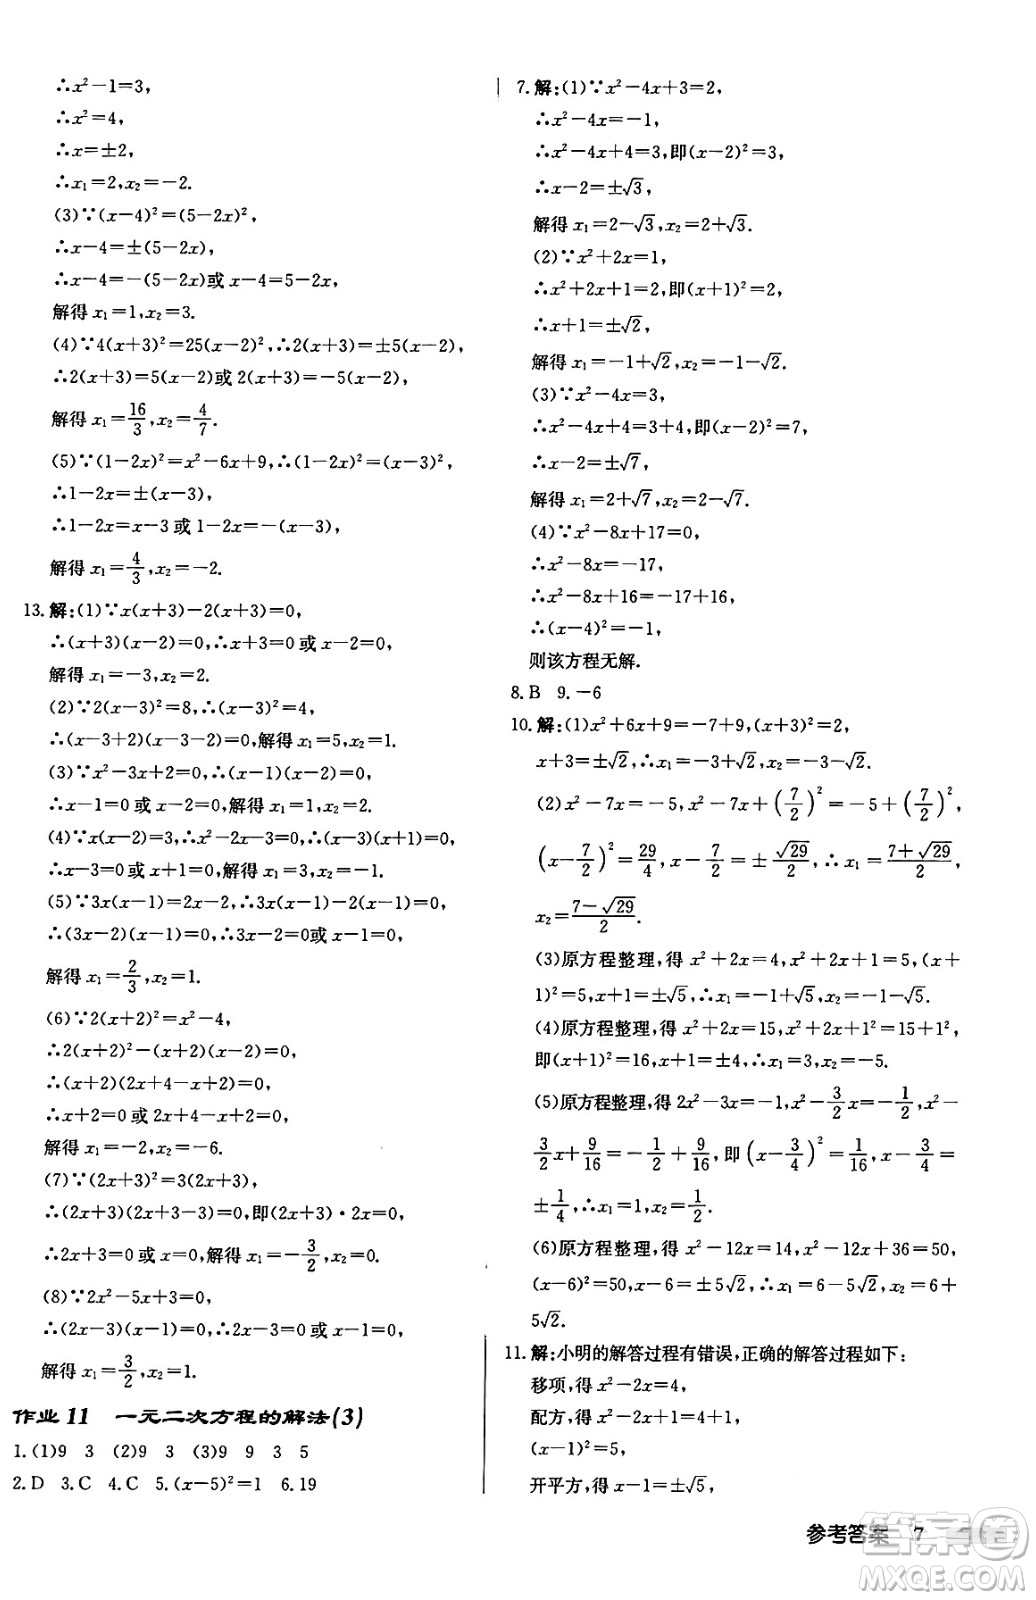 ∴x²-1=3,
∴x²=4,
∴x=±2,
∴x₁=2,x₂=-2.
(3)∵(x-4)²=(5-2x)²,
∴x-4=±(5-2x),
∴x-4=-(5-2x)或 x-4=5-2x,
解得 x₁=1,x₂=3.
(4)∵4(x+3)²=25(x-2)²,∴2(x+3)=±5(x-2),
∴2(x+3)=5(x-2)或 2(x+3)=-5(x-2),
解得 x₁=16/3,x₂=4/7.
(5)∵(1-2x)²=x²-6x+9,∴(1-2x)²=(x-3)²,
∴1-2x=±(x-3),
∴1-2x=x-3 或 1-2x=-(x-3),
解得 x₁=4/3,x₂=-2.
13.解:(1)∵x(x+3)-2(x+3)=0,
∴(x+3)(x-2)=0,∴x+3=0 或 x-2=0,
解得 x₁=-3,x₂=2.
(2)∵2(x-3)²=8,∴(x-3)²=4,
∴(x-3+2)(x-3-2)=0,解得 x₁=5,x₂=1.
(3)∵x²-3x+2=0,∴(x-1)(x-2)=0,
∴x-1=0 或 x-2=0,解得 x₁=1,x₂=2.
(4)∵x(x-2)=3,∴x²-2x-3=0,∴(x-3)(x+1)=0,
∴x-3=0 或 x+1=0,解得 x₁=3,x₂=-1.
(5)∵3x(x-1)=2x-2,∴3x(x-1)-2(x-1)=0,
∴(3x-2)(x-1)=0,∴3x-2=0 或 x-1=0,
解得 x₁=2/3,x₂=1.
(6)∵2(x+2)²=x²-4,
∴2(x+2)²-(x+2)(x-2)=0,
∴(x+2)(2x+4-x+2)=0,
∴x+2=0 或 2x+4-x+2=0,
解得 x₁=-2,x₂=-6.
(7)∵(2x+3)²=3(2x+3),
∴(2x+3)(2x+3-3)=0,即(2x+3)·2x=0,
∴2x+3=0 或 x=0,解得 x₁=-3/2,x₂=0.
(8)∵2x²-5x+3=0,
∴(2x-3)(x-1)=0,∴2x-3=0 或 x-1=0,
解得 x₁=3/2,x₂=1.
作业 11 一元二次方程的解法(3)
1.(1)9 3 (2)9 3 (3)9 9 3 5
2.D 3.C 4.C 5.(x-5)²=1 6.19
7.解:(1)∵x²-4x+3=2,
∴x²-4x=-1,
∴x²-4x+4=3,即(x-2)²=3,
∴x-2=±√3,
解得 x₁=2-√3,x₂=2+√3.
(2)∵x²+2x=1,
∴x²+2x+1=2,即(x+1)²=2,
∴x+1=±√2,
解得 x₁=-1+√2,x₂=-1-√2.
(3)∵x²-4x=3,
∴x²-4x+4=3+4,即(x-2)²=7,
∴x-2=±√7,
解得 x₁=2+√7,x₂=2-√7.
(4)∵x²-8x+17=0,
∴x²-8x=-17,
∴x²-8x+16=-17+16,
∴(x-4)²=-1,
则该方程无解.
8.B 9.-6
10.解:(1)x²+6x+9=-7+9,(x+3)²=2,
x+3=±√2,∴x₁=-3+√2,x₂=-3-√2.
(2)x²-7x=-5,x²-7x+(7/2)²=-5+(7/2)²,
(x-7/2)²=29/4,x-7/2=±√29/2,∴x₁=(7+√29)/2,
x₂=(7-√29)/2.
(3)原方程整理,得 x²+2x=4,x²+2x+1=5,(x+
1)²=5,x+1=±√5,∴x₁=-1+√5,x₂=-1-√5.
(4)原方程整理,得 x²+2x=15,x²+2x+1²=15+1²,
即(x+1)²=16,x+1=±4,∴x₁=3,x₂=-5.
(5)原方程整理,得 2x²-3x=-1,x²-3/2x=-1/2,x²-
3/2x+9/16=-1/2+9/16,即(x-3/4)²=1/16,x-3/4=
±1/4,∴x₁=1,x₂=1/2.
(6)原方程整理,得 x²-12x=14,x²-12x+36=50,
(x-6)²=50,x-6=±5√2,∴x₁=6-5√2,x₂=6+
5√2.
11.解:小明的解答过程有错误,正确的解答过程如下:
移项,得 x²-2x=4,
配方,得 x²-2x+1=4+1,
(x-1)²=5,
开平方,得 x-1=±√5,
参考答案 7
答案圈
MXQE.COM